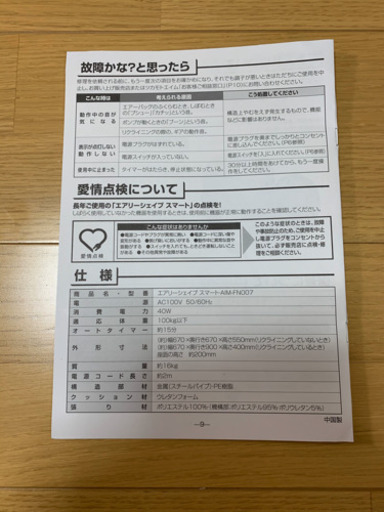 故障かな?と思ったら
修理を依頼される前に、もう一度次の項目をお確かめになり、それでも調子が悪いときはただちにご使用を中
止し、お買い上げ販売店またはツカモトエイム「お客様ご相談窓口」(P10)にお問い合わせください。
こんな時は 考えられる原因 こう処置してください
動作中の音が気になる
エアーバッグのふくらむとき、しぼむときの「プシュー」「カチッ」という音。
ポンプが働くときの「ブーン」という音。
リクライニングの際の、ギアの動作音。
構造上やむをえず発生するもので、機能などに影響はありません。
表示が点灯しない 動作しない
電源プラグがはずれている。
電源プラグを奥までしっかりとコンセントに差し込んでください。(P6参照)
電源スイッチが入っていない。
電源スイッチを「入」に入れてください。(P6参照)
使用中に止まった
タイマーがはたらき、停止状態になっている。
30分以上時間をあけてから、もう一度操作をしてください。
愛情点検について
長年ご使用の「エアリーシェイプ スマート」の点検を!
しばらく使用していなかった機器を使用するときは、使用前に機器が正常に動作することを確認してください。
愛情点検
こんな症状はありませんか
●電源コードやプラグが異常に熱い
●電源コードに深い傷や変形がある
●焦げ臭いにおいがする
●スイッチを入れても、ときどき動かないことがある
●動作中に異常な音がする
このような症状のときは、故障や事故防止のため、ご使用を中止し電源プラグをコンセントから抜いて、必ず販売店に点検・修理をご相談ください。
仕様
商品名・型番 エアリーシェイプ スマート AIM-FN007
電源 AC100V 50/60Hz
消費電力 40W
適応体重 100kg以下
オートタイマー 約15分
外形寸法
(約)幅670×奥行き670×高さ550mm(リクライニングしていないとき)
(約)幅670×奥行き900×高さ400mm(リクライニングしているとき)
座面の高さ 約200mm
質量 約16kg
電源コード長さ 約2m
構造部材 金属(スチールパイプ)・PE樹脂
クッション材 ウレタンフォーム
張り材 ポリエステル100%・(機構部:ポリエステル95% ポリウレタン5%)
中国製
―9―